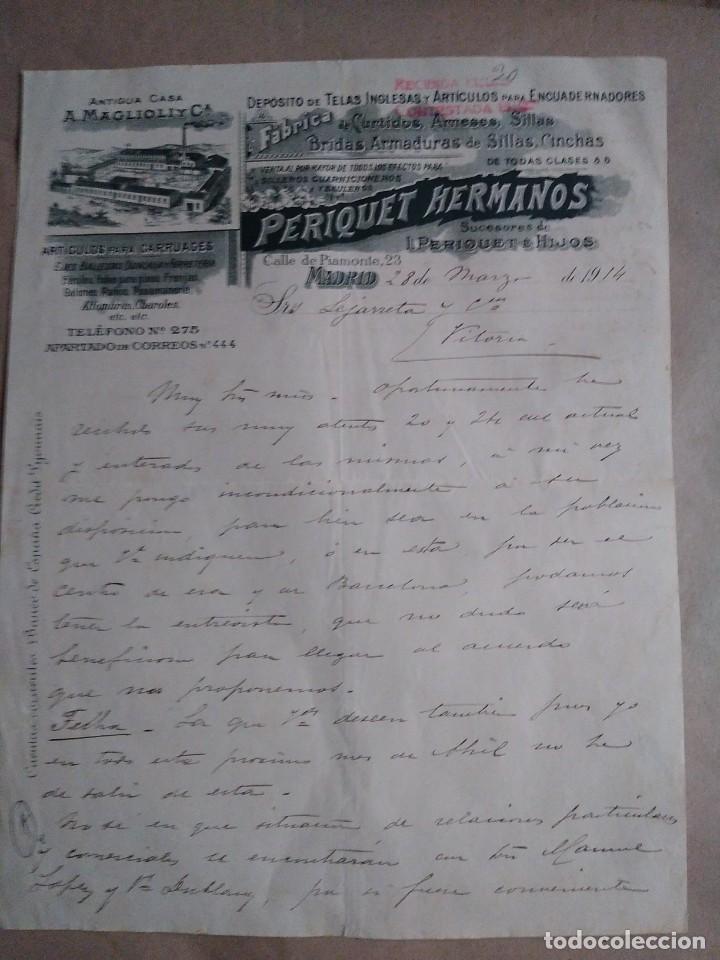 20
RECIBIDA
CONTESTADA
ANTIGUA CASA
A. MAGLIOLI Y Cª
DEPÓSITO DE TELAS INGLESAS Y ARTÍCULOS PARA ENCUADERNADORES
Fábrica de Curtidos, Arneses, Sillas
Bridas, Armaduras de Sillas, Cinchas
DE TODAS CLASES
VENTA AL POR MAYOR DE TODOS LOS EFECTOS PARA
SILLEROS GUARNICIONEROS
Y BAULEROS
PERIQUET HERMANOS
Sucesores de
I. PERIQUET É HIJOS
Calle de Piamonte, 23
MADRID 28 de Marzo de 1914
ARTÍCULOS PARA CARRUAGES
Alfombras, Charoles,
etc. etc.
TELÉFONO Nº 275
APARTADO DE CORREOS Nº 444
Cuentas corrientes: Banco de España Credit Lyonnais
Srs Lejarreta y Cia
Vitoria
Muy Srs mios. Oportunamente he
recibido sus muy atentas 20 y 24 del actual
y enterados de las mismas, á mi vez
me pongo incondicionalmente á su
disposicion, para bien sea en la poblacion
que Vs indiquen, ó en esta por ser el
centro de esa y de Barcelona, podamos
tener la entrevista, que no dudo será
beneficiosa para llegar al acuerdo
que nos proponemos.
Fecha. La que Vds deseen tambien pues yo
en todo este proximo mes de Abril no he
de salir de esta.
No sé en que situacion de relaciones particulares
y comerciales se encontrarán con Dn Manuel
Lopez y Vª por si fuere conveniente